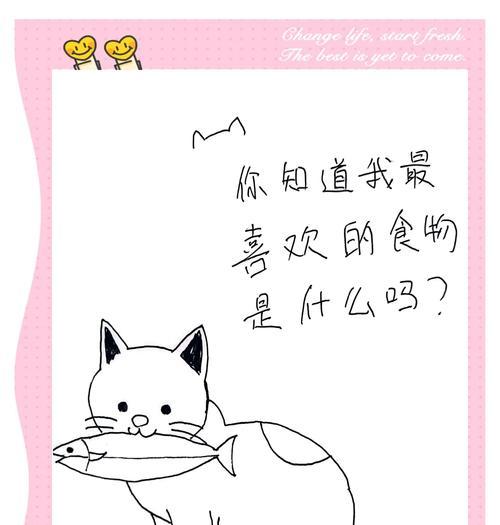 Change life, start fresh.
The best is yet to come.
你知道我最
喜欢的食物
是什么吗？